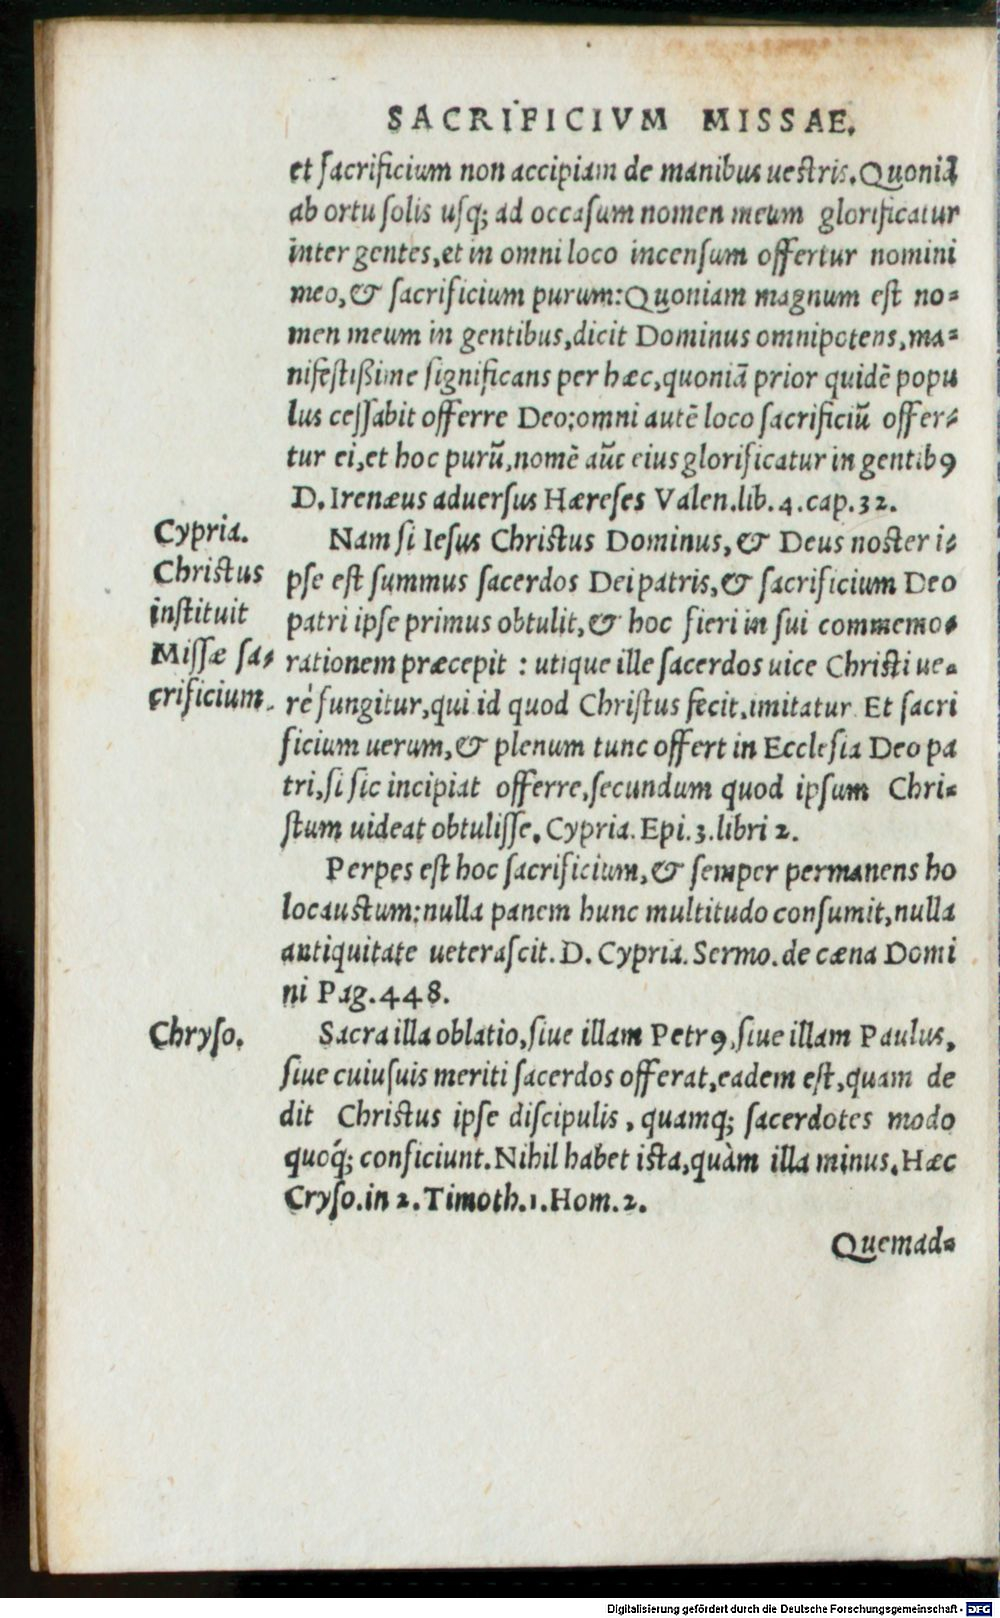 SACRIFICIVM MISSAE.
et sacrificium non accipiam de manibus uestris. Quoniā
ab ortu solis usq; ad occasum nomen meum glorificatur
inter gentes, et in omni loco incensum offertur nomini
meo, & sacrificium purum: Quoniam magnum est no=
men meum in gentibus, dicit Dominus omnipotens, ma=
nifestißime significans per hæc, quoniā prior quidē popu
lus cessabit offerre Deo; omni autē loco sacrificiū offer=
tur ei, et hoc purū, nomē aūt eius glorificatur in gentibꝰ
D. Irenæus aduersus Hæreses Valen. lib. 4. cap. 32.
Cypria.
Christus
instituit
Missæ sa=
crificium.
Nam si Iesus Christus Dominus, & Deus noster i=
pse est summus sacerdos Dei patris, & sacrificium Deo
patri ipse primus obtulit, & hoc fieri in sui commemo=
rationem præcepit : utique ille sacerdos uice Christi ue=
rè fungitur, qui id quod Christus fecit, imitatur. Et sacri
ficium uerum, & plenum tunc offert in Ecclesia Deo pa
tri, si sic incipiat offerre, secundum quod ipsum Chri=
stum uideat obtulisse. Cypria. Epi. 3. libri 2.
Perpes est hoc sacrificium, & semper permanens ho
locaustum: nulla panem hunc multitudo consumit, nulla
antiquitate ueterascit. D. Cypria. Sermo. de cæna Domi
ni Pag. 448.
Chryso.
Sacra illa oblatio, siue illam Petrꝰ, siue illam Paulus,
siue cuiusuis meriti sacerdos offerat, eadem est, quam de
dit Christus ipse discipulis, quamq; sacerdotes modo
quoq́; conficiunt. Nihil habet ista, quàm illa minus. Hæc
Cryso. in 2. Timoth. 1. Hom. 2.
Quemad=
Digitalisierung gefördert durch die Deutsche Forschungsgemeinschaft - DFG